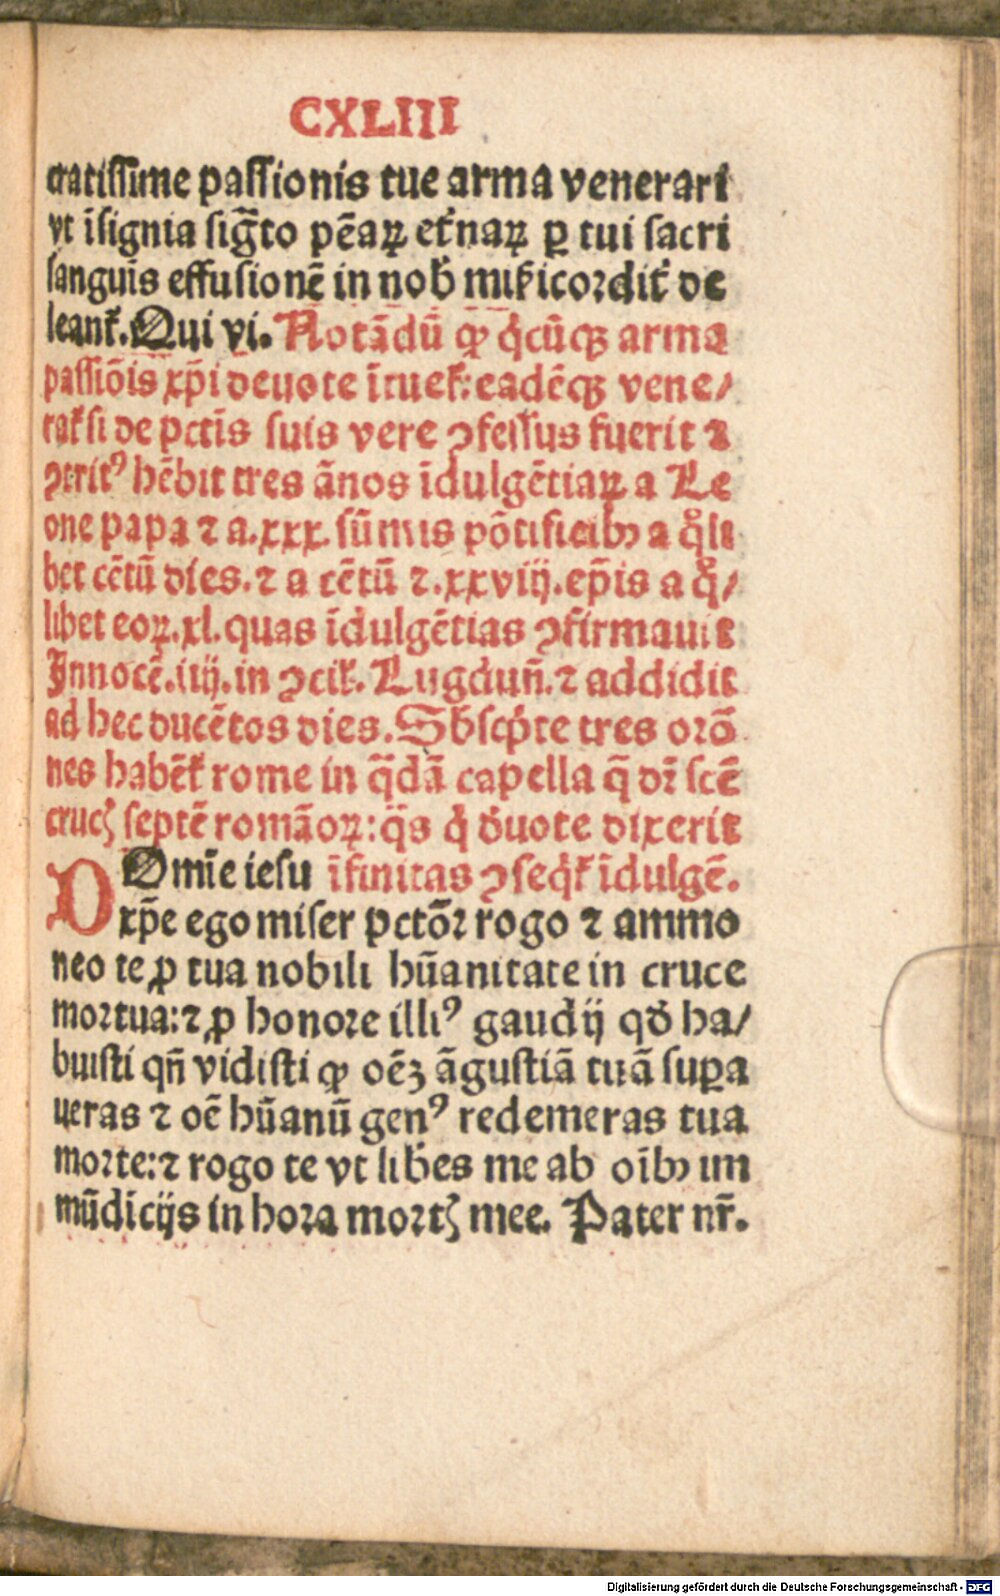 CXLIII
cratissime passionis tue arma venerari
vt īsignia siḡto pēaꝝ et̄naꝝ ꝑ tui sacri
sanguīs effusionē in nob̄ miẜicordit̄ de
leant᷑. Qui vi. Notādū ꝙ q̄cūqꝫ arma
passiōis xp̄i deuote ītuet᷑: eadēqꝫ vene/
rat᷑ si de pctīs suis vere ꝯfessus fuerit ⁊
ꝯtritꝰ hēbit tres ānos īdulgētiaꝝ a Le
one papa ⁊ a .xxx. sūmis pōtificibꝫ a q̊li
bet cētū dies. ⁊ a cētū ⁊ .xxviij. ep̄is a q̊/
libet eoꝝ .xl. quas īdulgētias ꝯfirmauit
Innocē. iiij. in ꝯcil̄. Lugduñ. ⁊ addidit
ad hec ducētos dies. Sb̄scp̄te tres orō
nes habēt᷑ rome in q̄dā capella q̄ dr̄ scē
crucꝭ septē romāoꝝ: q̄s q̇ d̄uote dixerit
īfinitas ꝯseq̇t᷑ īdulgē.
DOmīe iesu
xp̄e ego miser pctōꝛ rogo ⁊ ammo
neo te ꝓ tua nobili hūanitate in cruce
mortua: ⁊ ꝓ honore illiꝰ gaudij qd̄ ha/
buisti qñ vidisti ꝙ oēꝫ āgustiā tuā suꝑa
ueras ⁊ oē hūanū genꝰ redemeras tua
morte: ⁊ rogo te vt lib̄es me ab oībꝫ im
mūdicijs in hora mortꝭ mee. Pater nr̄.
Digitalisierung gefördert durch die Deutsche Forschungsgemeinschaft - DFG